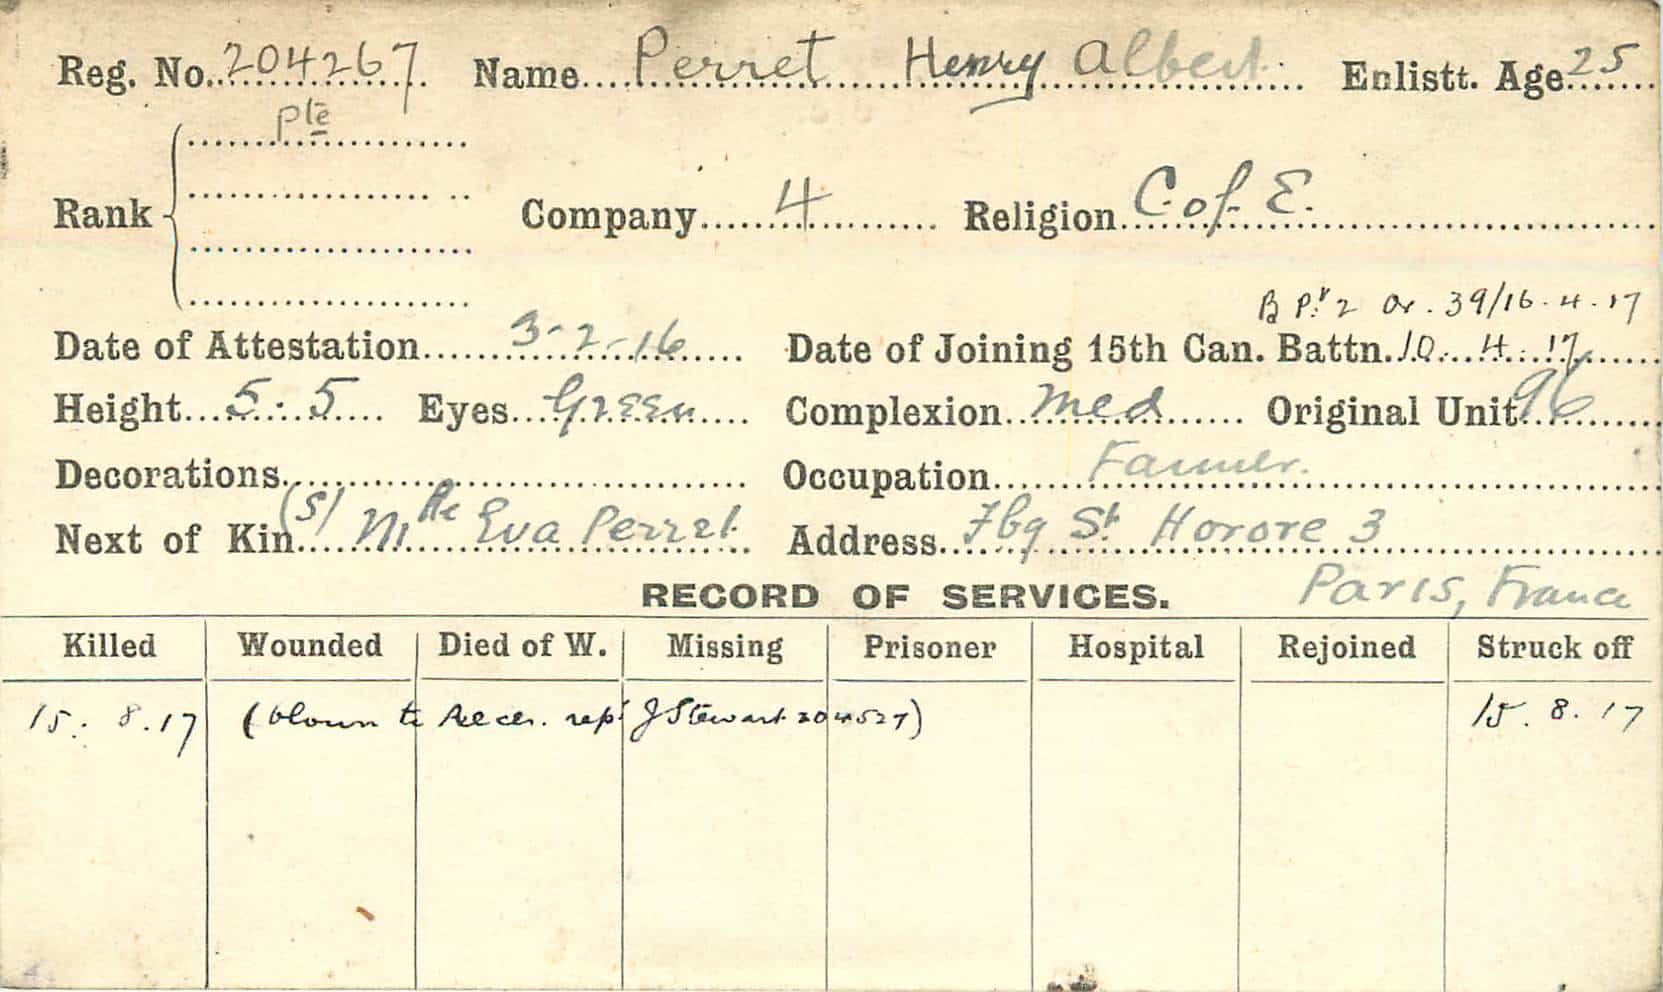 Reg. No. 204267 Name Perret Henry Albert Enlistt. Age 25
Pte
Rank Company 4 Religion C. of E.
B Pt 2 Or. 39/16-4-17
Date of Attestation 3-2-16 Date of Joining 15th Can. Battn. 10.4.17
Height 5.5 Eyes Green Complexion Med Original Unit 96
Decorations Occupation Farmer.
Next of Kin (S) Mlle Eva Perret Address Fbg St Honore 3
RECORD OF SERVICES. Paris, France
Killed Wounded Died of W. Missing Prisoner Hospital Rejoined Struck off
15.8.17 (blown to pieces. rept J Stewart 204527) 15.8.17